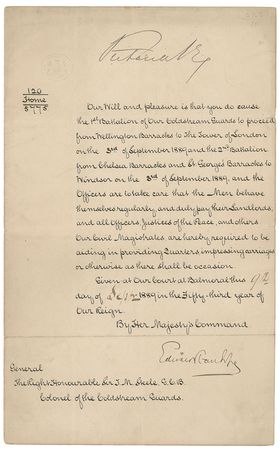 Victoria R
120
Home
5995
Our Will and pleasure is that you do cause
the 1st Battalion of Our Coldstream Guards to proceed
from Wellington Barracks to The Tower of London
on the 3rd of September 1889 and the 2nd Battalion
from Chelsea Barracks and St George's Barracks to
Windsor on the 3rd of September 1889, and the
Officers are to take care that the Men behave
themselves regularly, and duly pay their Landlords,
and all officers, Justices of the Peace, and others
Our Civil Magistrates are hereby required to be
aiding in providing Quarters impressing carriages
or otherwise as there shall be occasion.
Given at Our Court at Balmoral this
day of 1889 in the Fifty-third year of
Our Reign.
By Her Majesty's Command
General
The Right Honourable Sir J. M. Steele. G.C.B.
Colonel of the Coldstream Guards.